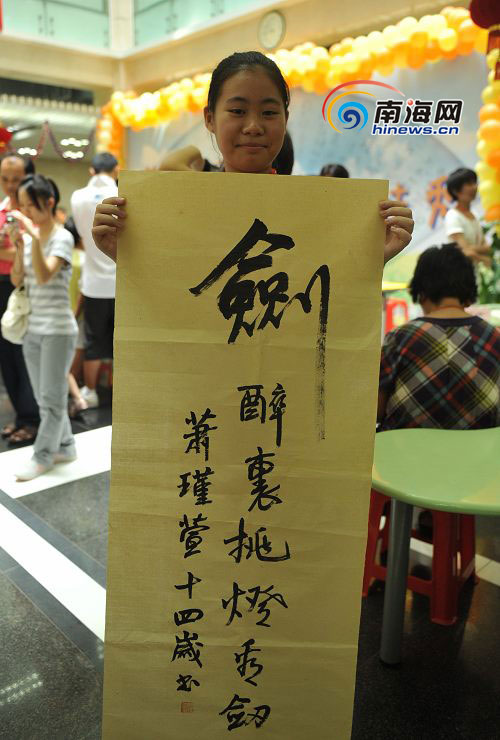 南海网
hinews.cn
劍
醉裏挑燈看釰
蕭瑾萱十四歲书